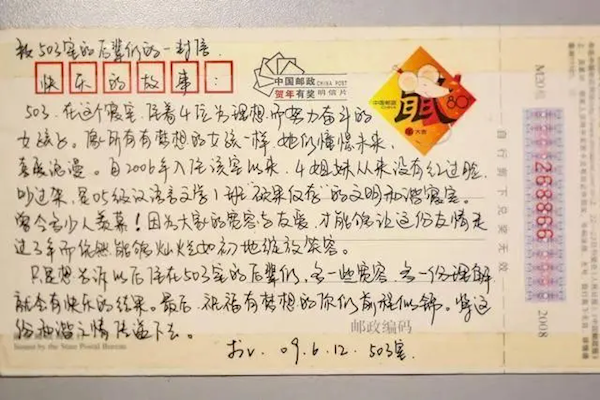 致503室的后辈们的一封信
快乐的故事：
中国邮政 CHINA POST
贺年有奖 明信片
中国邮政
80
503，在这个寝室，住着4位为理想而努力奋斗的
女孩。像所有有梦想的女孩一样，她们憧憬未来，
喜欢浪漫。自2006年入住该室以来，4姐妹从来没有红过脸，
吵过架，是05级汉语言文学1班"硕果仅存"的文明和谐寝室。
曾令多少人羡慕！因为大家的宽容与友爱，才能够让这份友情走
过3年而依然能够灿烂如初地绽放笑容。
只是想告诉以后住在503室的后辈们，多一些宽容，多一份理解
就会有快乐的结果。最后，祝福有梦想的你们前程似锦。将这
份和谐之情传递下去。
邮政编码
Issued by the State Postal Bureau
于 09.6.12. 503室.
自行剪下兑奖无效
268866
2008